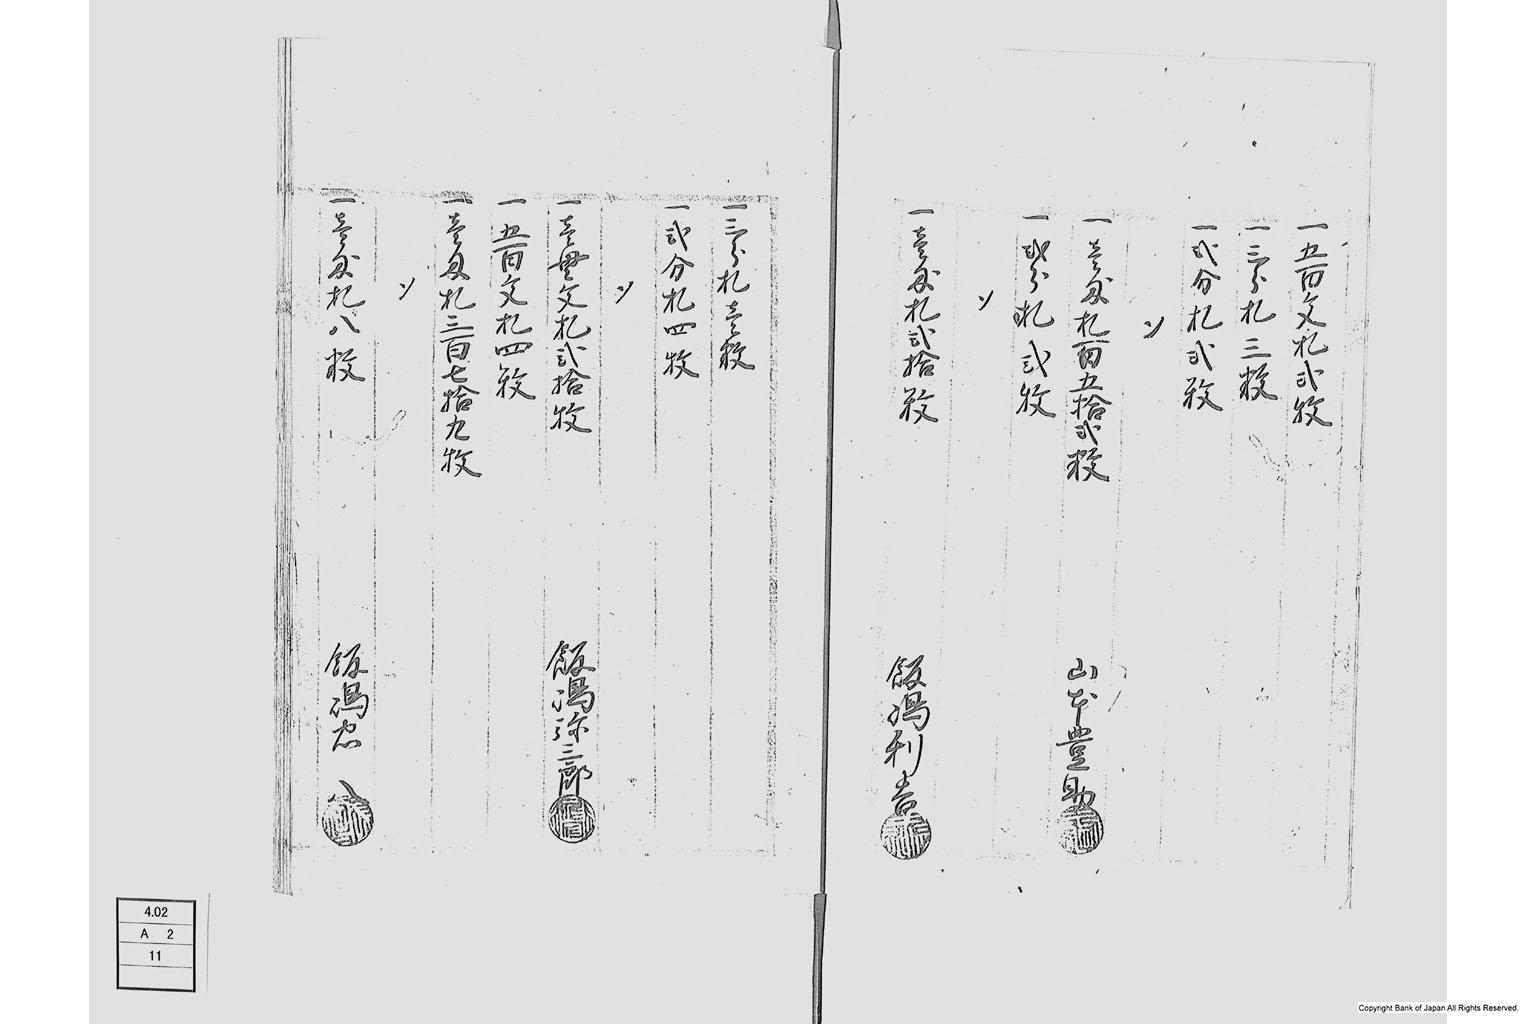 一五百文札弐枚
一三分札三枚
一弐分札弐枚
〆
一壱匁札百五拾弐枚 山本豊助
一弐分札弐枚
〆
一壱匁札弐拾枚 飯馮利吉
一三分札壱枚
一弐分札四枚
〆
一壱貫文札弐拾枚 飯馮弥三郎
一五百文札四枚
一壱匁札三百七拾九枚
〆
一壱匁札八枚 飯馮忠八
4.02
A 2
11
Copyright Bank of Japan All Rights Reserved.